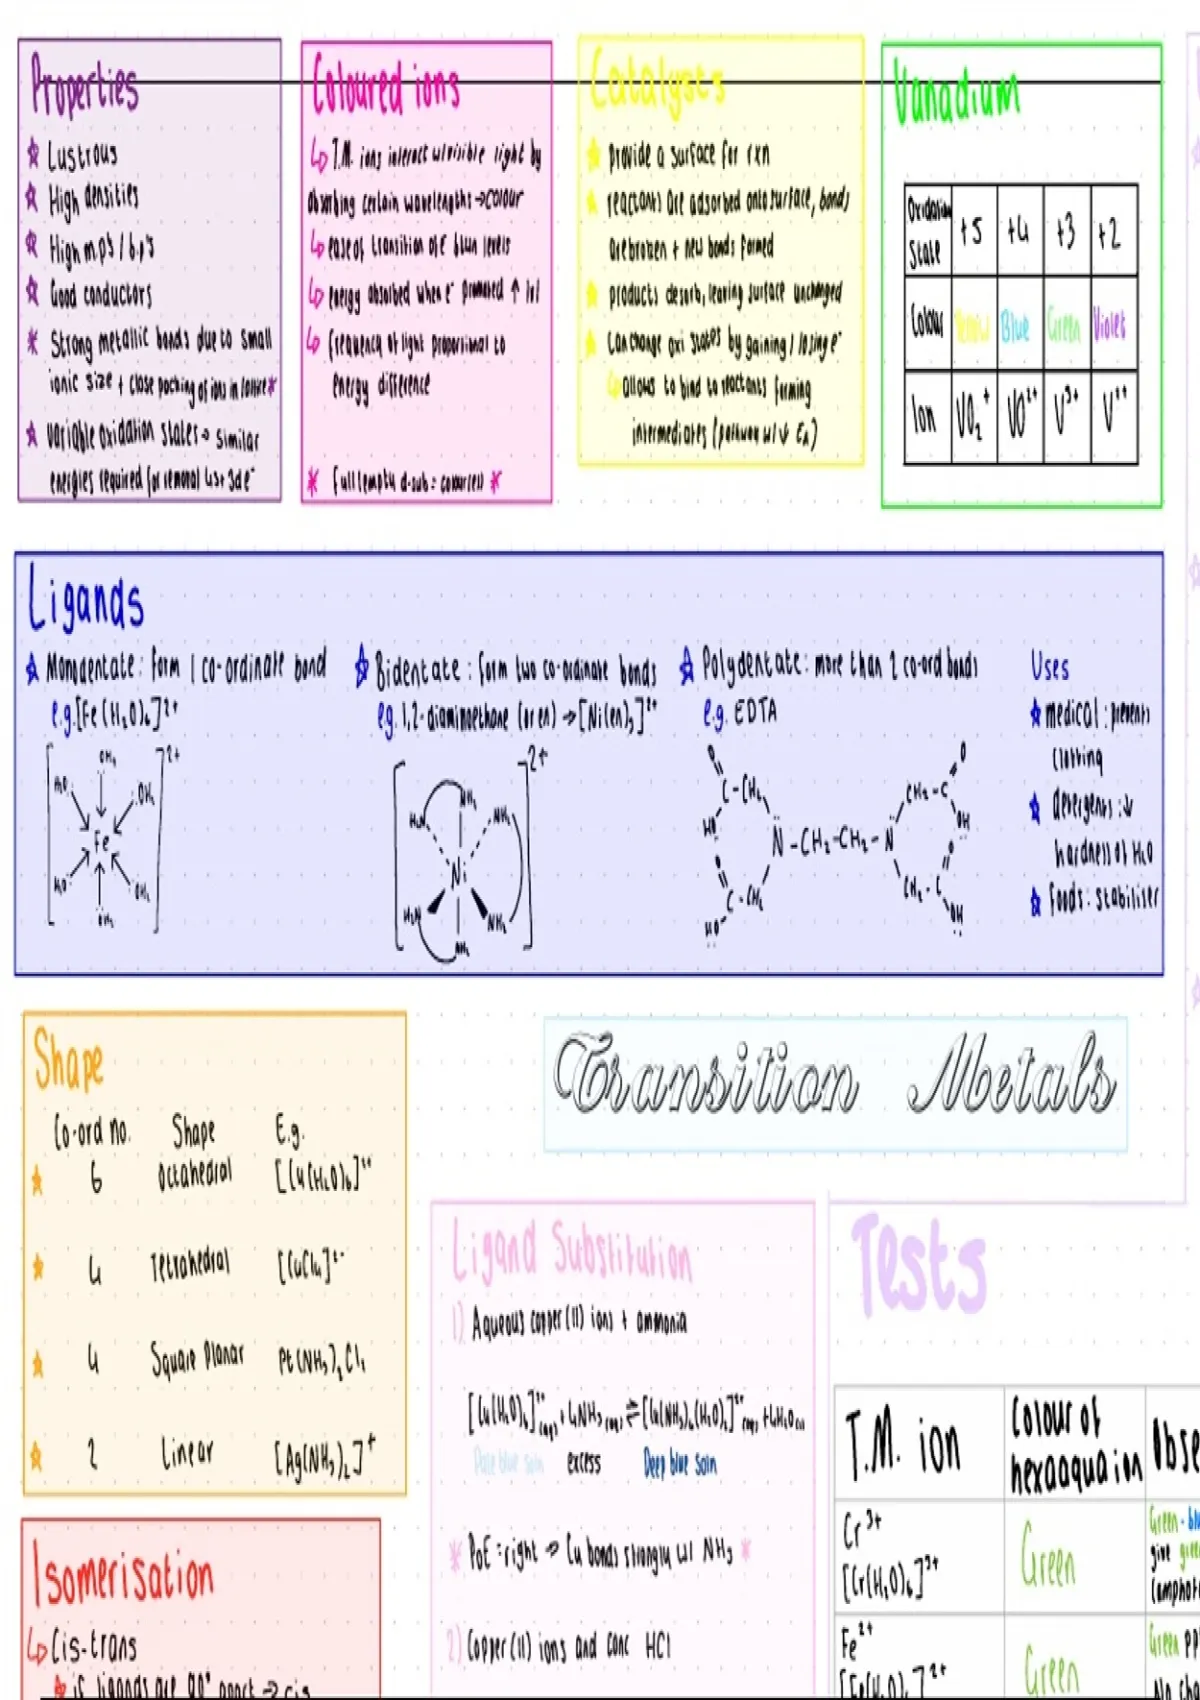 Properties
☆ Lustrous
☆ High densities
☆ High m.p's / b.p's
☆ Good conductors
* Strong metallic bonds due to small
ionic size + close packing of ions in lattice *
☆ Variable oxidation states → similar
energies required for removal 4s + 3d e⁻
Coloured ions
↳ T.M. ions interact w/visible light by
absorbing certain wavelengths → colour
↳ ease of transition of e⁻ btwn levels
↳ energy absorbed when e⁻ promoted ↑
↳ frequency of light proportional to
energy difference
* full/empty d-sub = colourless *
Catalysts
☆ provide a surface for rxn
☆ reactants are adsorbed onto surface, bonds
are broken + new bonds formed
☆ products desorb, leaving surface unchanged
☆ Can change oxi states by gaining / losing e⁻
↳ allows to bind to reactants forming
intermediates (pathway w/ ↓ EA)
Vanadium
Oxidation State +5 +4 +3 +2
Colour Yellow Blue Green Violet
Ion VO₂⁺ VO²⁺ V³⁺ V²⁺
Ligands
☆ Monodentate: form 1 co-ordinate bond
e.g. [Fe(H₂O)₆]²⁺
2+
OH₂
H₂O OH₂
Fe
H₂O OH₂
OH₂
☆ Bidentate: form two co-ordinate bonds
eg. 1,2-diaminoethane (or en) → [Ni(en)₃]²⁺
2+
NH₂
H₂N NH₂
Ni
H₂N NH₂
NH₂
☆ Polydentate: more than 2 co-ord bonds
e.g. EDTA
O O
C-CH₂ CH₂-C
HO OH
N-CH₂-CH₂-N
O O
C-CH₂ CH₂-C
HO OH
Uses
☆ medical: prevents
clotting
☆ detergents: ↓
hardness of H₂O
☆ foods: stabiliser
Shape
Co-ord no. Shape E.g.
☆ 6 Octahedral [Cu(H₂O)₆]²⁺
☆ 4 Tetrahedral [CuCl₄]²⁻
☆ 4 Square Planar Pt(NH₃)₂Cl₂
☆ 2 Linear [Ag(NH₃)₂]⁺
Transition Metals
Isomerisation
↳ Cis-trans
☆ if ligands are 90° apart → cis
Ligand Substitution
1) Aqueous copper (II) ions + ammonia
[Cu(H₂O)₆]²⁺(aq) + 4NH₃(aq) ⇌ [Cu(NH₃)₄(H₂O)₂]²⁺(aq) + 4H₂O(l)
Pale blue soln excess Deep blue soln
* PoE: right → Cu bonds strongly w/ NH₃ *
2) Copper (II) ions and conc HCl
Tests
T.M. ion Colour of hexaaqua ion Obse
Cr³⁺
[Cr(H₂O)₆]³⁺
Green
Green-blu
give gree
(amphot
Fe²⁺
[Fe(H₂O)₆]²⁺
Green
Green pp
No cha